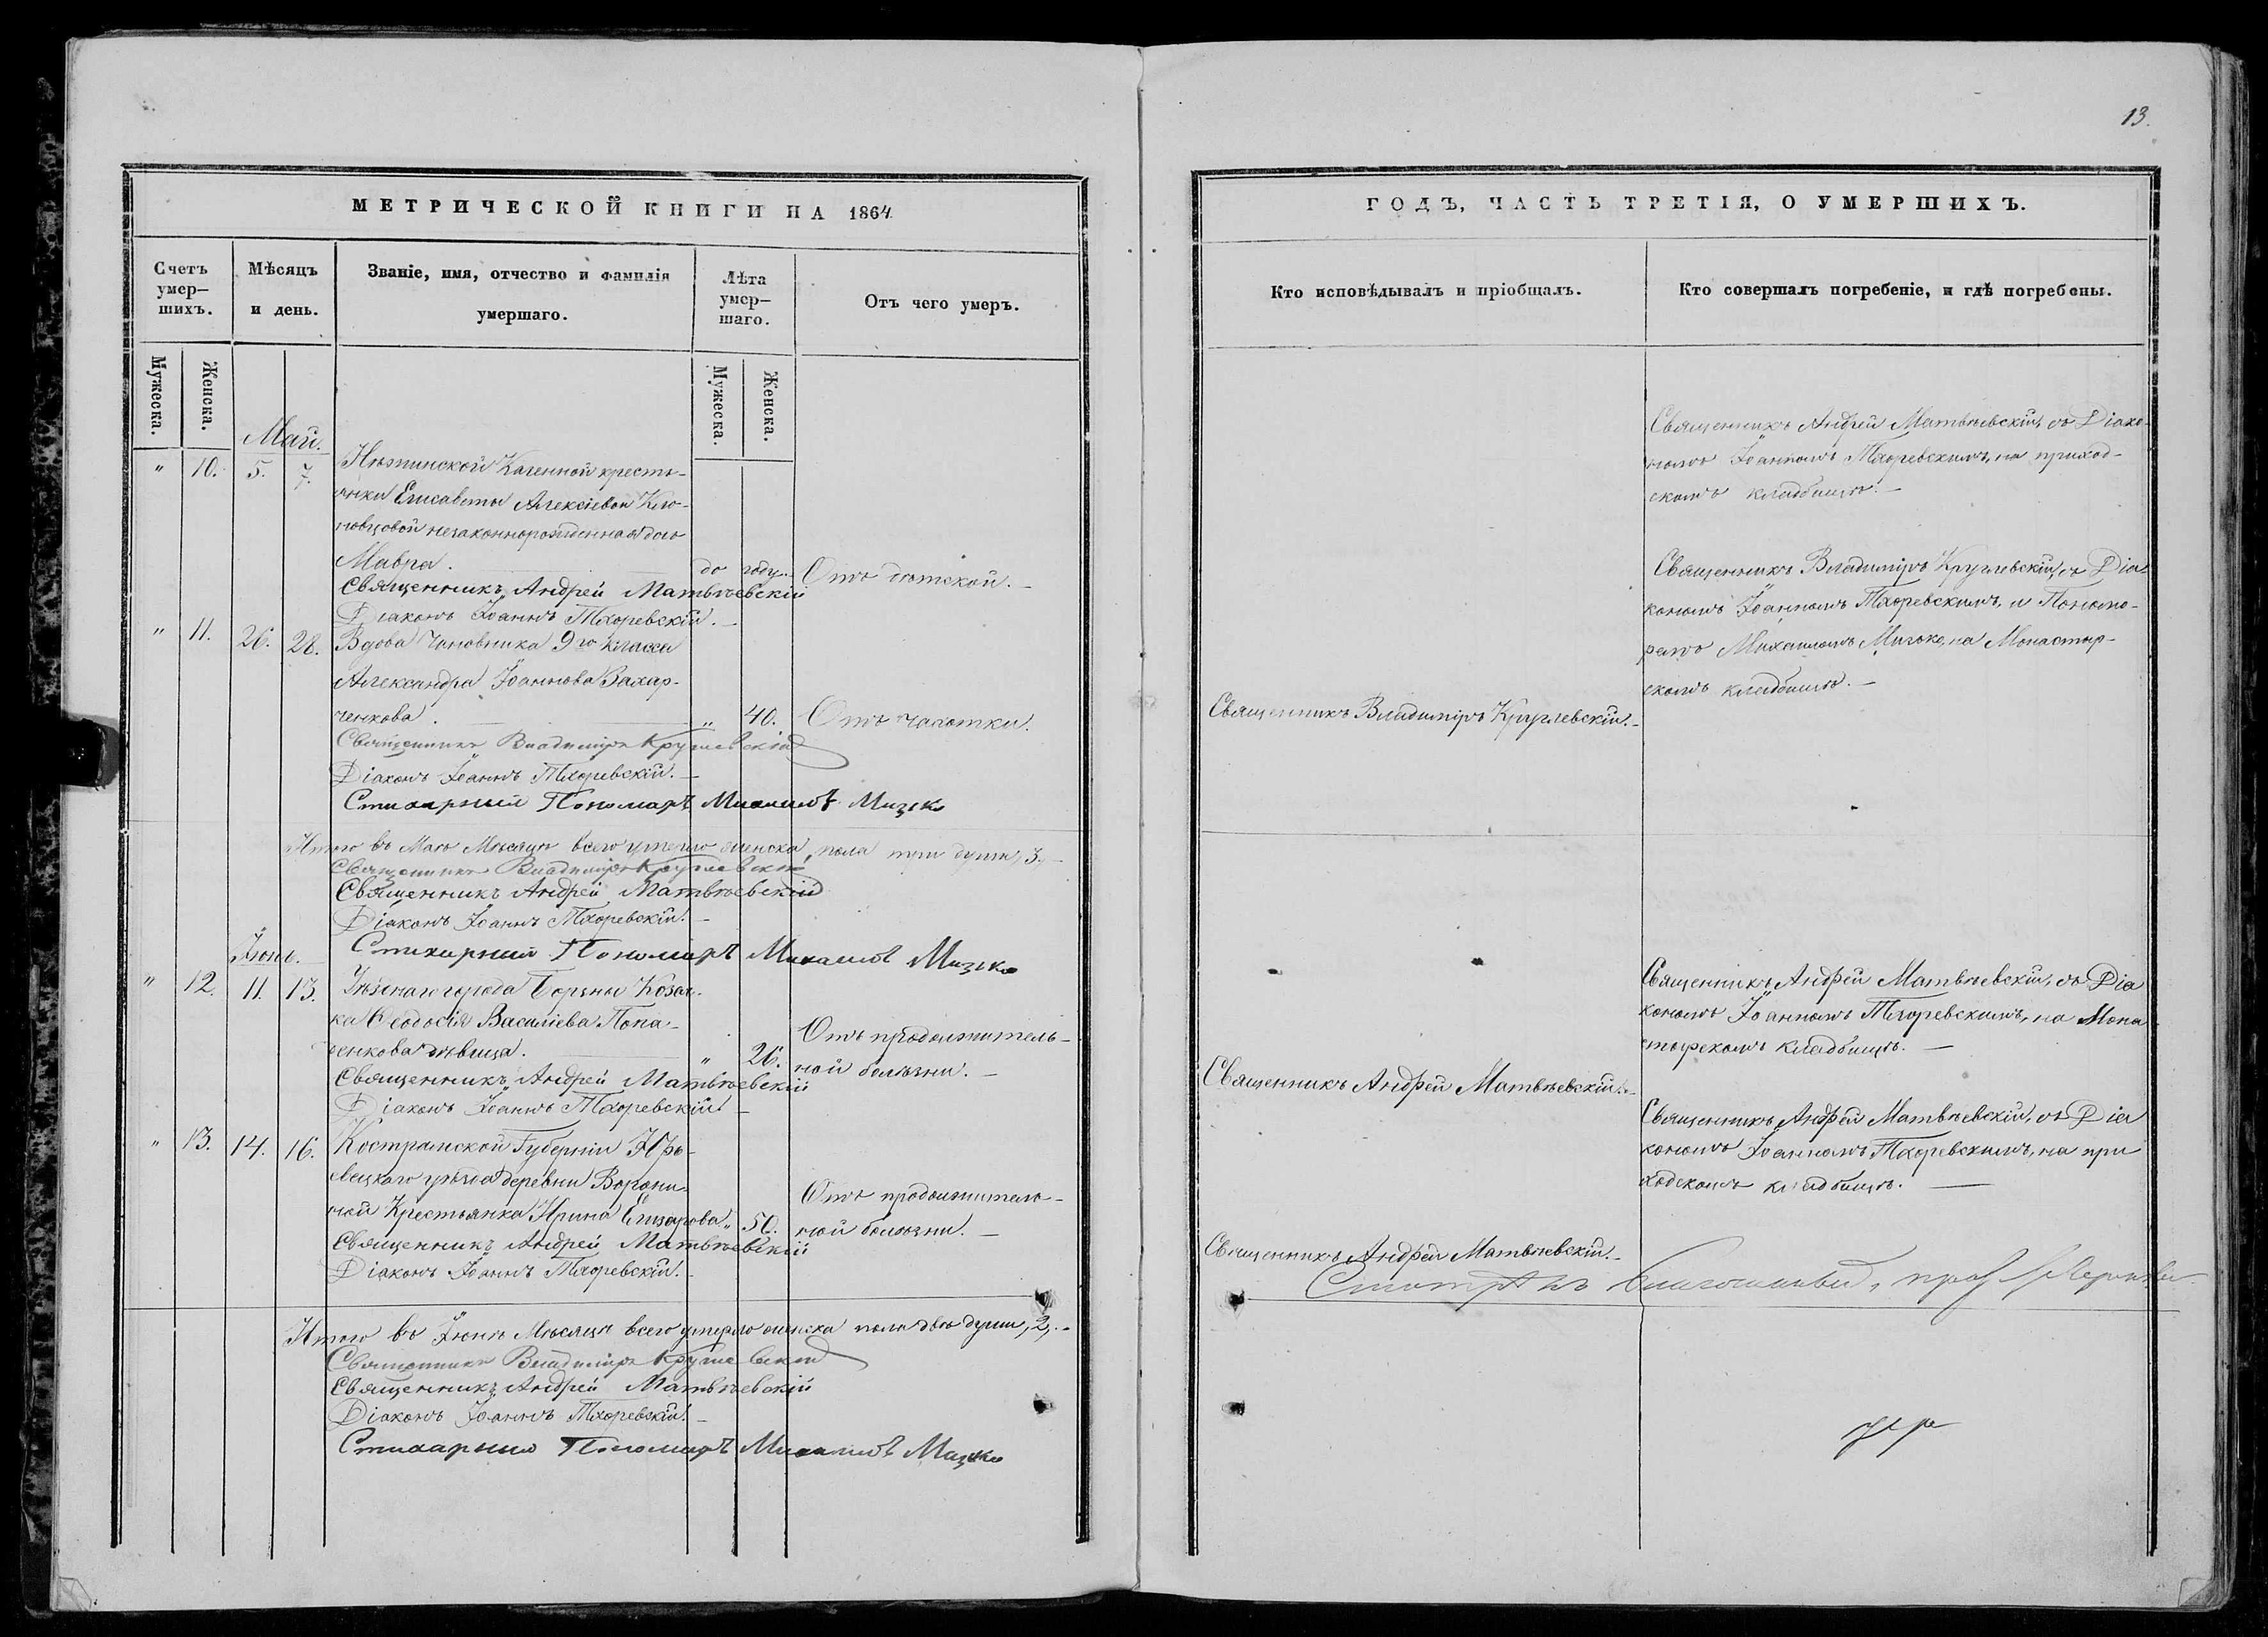 13.
МЕТРИЧЕСКОЙ КНИГИ НА 1864
Счетъ умер—шихъ.
Мѣсяцъ и день.
Званіе, имя, отчество и фамилія умершаго.
Лѣта умер—шаго.
Отъ чего умеръ.
Мужеска.
Женска.
Мужеска.
Женска.
Май.
" 10. 5. 7. Нѣжинской Казенной кресть-
янки Елисаветы Алексіевой
незаконнорожденная дочь
Мавра. до году. Отъ дѣтской.
Священникъ Андрей Матвѣевскій
Діаконъ Іоаннъ Тхоревскій.
" 11. 26. 28. Вдова Чиновника 9го класса
Александра Іоаннова Захар-
ченкова. " 40. Отъ чахотки.
Священникъ Владиміръ Круглевскій
Діаконъ Іоаннъ Тхоревскій.
Стихарный Пономарь Михаилъ Мизько
Итого въ Маѣ Мѣсяцѣ всего умерло женска пола три души, 3.
Священникъ Владиміръ Круглевскій
Священникъ Андрей Матвѣевскій
Діаконъ Іоаннъ Тхоревскій.
Стихарный Пономарь Михаилъ Мизько
Іюнь.
" 12. 11. 13. Уѣзднаго города Борзны Козач-
ка Ѳеодосія Василіева
дѣвица. " 26. Отъ продолжитель-
ной болѣзни.
Священникъ Андрей Матвѣевскій
Діаконъ Іоаннъ Тхоревскій.
" 13. 14. 16. Костромской Губерніи Юрь-
евецкаго уѣзда деревни Ворони-
ной Крестьянка Ирина Елизарова " 50. Отъ продолжитель-
ной болѣзни.
Священникъ Андрей Матвѣевскій
Діаконъ Іоаннъ Тхоревскій.
Итого въ Іюнѣ Мѣсяцѣ всего умерло женска пола двѣ души, 2.
Священникъ Владиміръ Круглевскій
Священникъ Андрей Матвѣевскій
Діаконъ Іоаннъ Тхоревскій.
Стихарный Пономарь Михаилъ Мизько
ГОДЪ, ЧАСТЬ ТРЕТІЯ, О УМЕРШИХЪ.
Кто исповѣдывалъ и пріобщалъ.
Кто совершалъ погребеніе, и гдѣ погребены.
Священникъ Андрей Матвѣевскій, съ Діако-
номъ Іоанномъ Тхоревскимъ, на приход-
скомъ кладбищѣ.
Священникъ Владиміръ Круглевскій.
Священникъ Владиміръ Круглевскій, съ Діа-
кономъ Іоанномъ Тхоревскимъ, и Понома-
ремъ Михаиломъ Мизько, на Монастыр-
скомъ кладбищѣ.
Священникъ Андрей Матвѣевскій.
Священникъ Андрей Матвѣевскій, съ Діа
кономъ Іоанномъ Тхоревскимъ, на Мона
стырскомъ кладбищѣ.
Священникъ Андрей Матвѣевскій.
Священникъ Андрей Матвѣевскій, съ Діа
кономъ Іоанномъ Тхоревскимъ, на при
ходскомъ кладбищѣ.